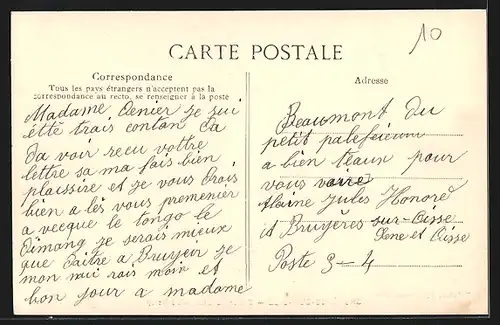 10
CARTE POSTALE
Correspondance
Tous les pays étrangers n'acceptent pas la
correspondance au recto, se renseigner à la poste
Adresse
Madame Denier je sui
étté trais contan Da
Da voir recu vottre
lettre sa ma fais bien
plaissire et je vous Crois
bien a lés vous premenier
a vecque le tongo le
Dimang je serais mieux
que Daitre a Bruyeir je
mon nui rais moin et
bon jour a madame
Beaumont Du
petit
a bien teaux pour
vous voire
Jules Honoré
it Bruyères sur-Oisse
Sene et Oisse
Poste 3-4